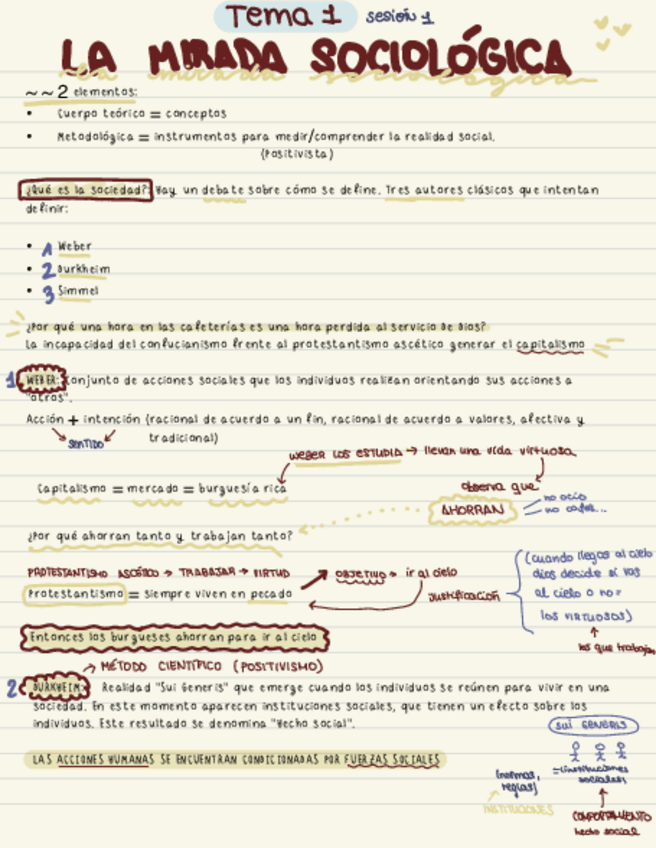 Tema 1 sesión 1
LA MIRADA SOCIOLÓGICA
la mirada sociológica
~~2 elementos:
• Cuerpo teórico = conceptos
• Metodológica = instrumentos para medir/comprender la realidad social.
(Positivista)
¿Qué es la sociedad?: Hay un debate sobre cómo se define. Tres autores clásicos que intentan
definir:
• 1 Weber
• 2 Durkheim
• 3 Simmel
¿Por qué una hora en las cafeterías es una hora perdida al servicio de Dios?
La incapacidad del confucianismo frente al protestantismo ascético generar el capitalismo
1 WEBER: Conjunto de acciones sociales que los individuos realizan orientando sus acciones a
"otros".
Acción + intención (racional de acuerdo a un fin, racional de acuerdo a valores, afectiva y
tradicional)
SENTIDO
WEBER LOS ESTUDIA → llevan una vida virtuosa
Capitalismo = mercado = burguesía rica
observa que
AHORRAN
no ocio
no cafés...
¿Por qué ahorran tanto y trabajan tanto?
PROTESTANTISMO ASCÉTICO → TRABAJAR → VIRTUD → OBJETIVO → ir al cielo
Protestantismo = siempre viven en pecado
Justificación
(cuando llegas al cielo
dios decide si vas
al cielo o no =
los VIRTUOSOS)
los que trabajan
Entonces los burgueses ahorran para ir al cielo
→ MÉTODO CIENTÍFICO (POSITIVISMO)
2 DURKHEIM: Realidad "Sui Generis" que emerge cuando los individuos se reúnen para vivir en una
sociedad. En este momento aparecen instituciones sociales, que tienen un efecto sobre los
individuos. Este resultado se denomina "Hecho social".
SUI GENERIS
LAS ACCIONES HUMANAS SE ENCUENTRAN CONDICIONADAS POR FUERZAS SOCIALES
=(instituciones
sociales)
(normas,
reglas)
INSTITUCIONES
COMPORTAMIENTO
hecho social